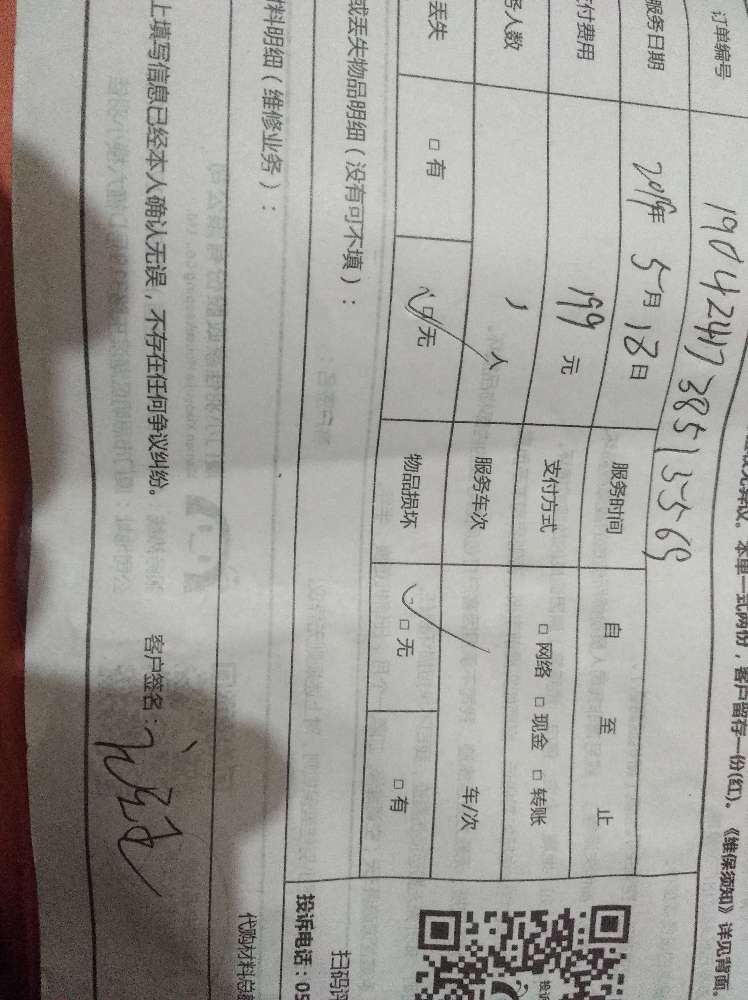 本单一式两份，客户留存一份(红)。《维保须知》详见背面。
订单编号 190424173851
服务日期 2019年 5月 18日 服务时间 自 至 止
付费用 199 元 支付方式 □ 网络 □ 现金 □ 转账
人数 1 人 服务车次 车/次
丢失 □ 有 □ 无 物品损坏 □ 无 □ 有
或丢失物品明细（没有可不填）：
料明细（维修业务）：
上填写信息已经本人确认无误，不存在任何争议纠纷。 客户签名：
投诉
扫码评
投诉电话：05
代购材料总